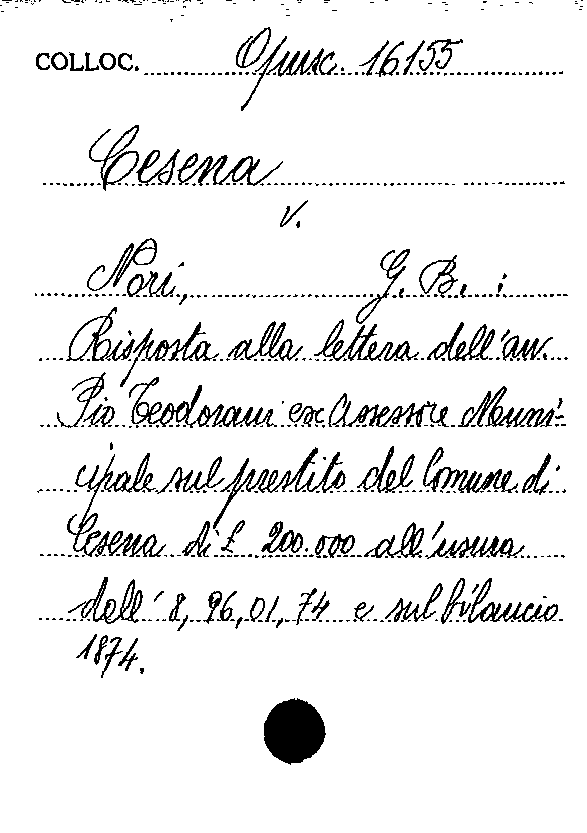 COLLOC. Opusc. 16155
Cesena
v.
Nori, G. B. :
Risposta alla lettera dell'avv.
Pio Teodorani ex Assessore Muni-
cipale sul prestito del Comune di
Cesena di £ 200.000 all'usura
dell' 8, 96, 01, 74 e sul bilancio
1874.